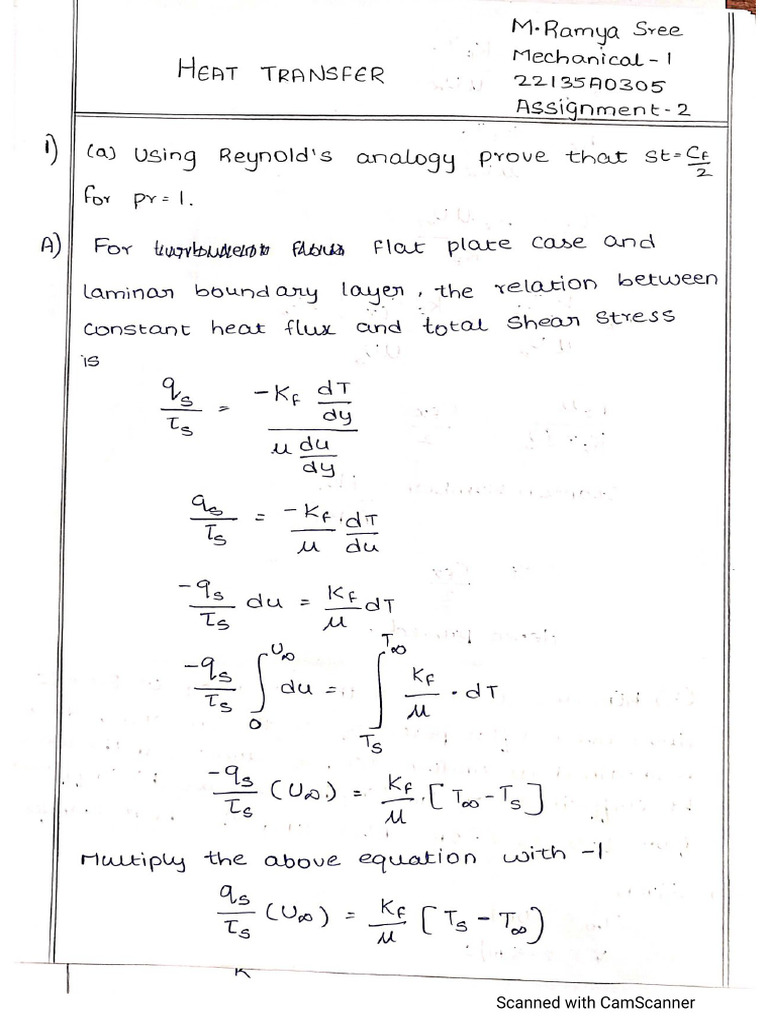 M.Ramya Sree
Mechanical-1
22135A0305
Assignment-2
HEAT TRANSFER
1) (a) Using Reynold's analogy prove that st = Cf/2
for pr = 1.
A) For flat plate case and
laminar boundary layer, the relation between
constant heat flux and total shear stress
is
qs/τs = (-Kf dT/dy)/(μ du/dy)
qs/τs = -Kf/μ . dT/du
-qs/τs du = Kf/μ dT
-qs/τs ∫₀^U∞ du = ∫_Ts^T∞ Kf/μ . dT
-qs/τs (U∞) = Kf/μ . [T∞ - Ts]
Multiply the above equation with -1
qs/τs (U∞) = Kf/μ [Ts - T∞)
Scanned with CamScanner